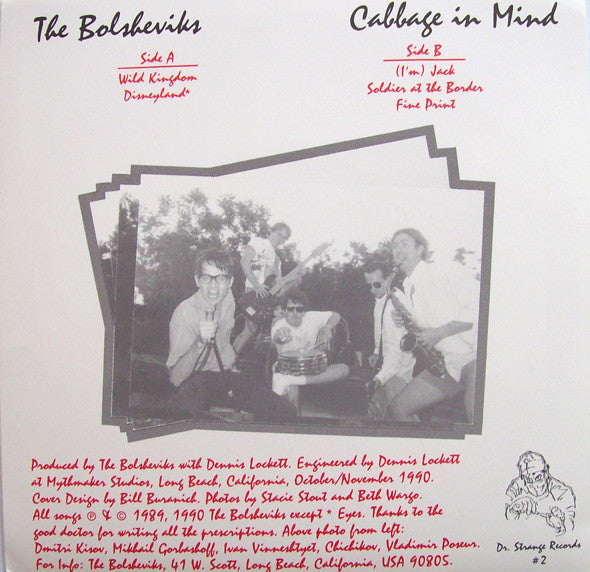 The Bolsheviks
Cabbage in Mind
Side A
Wild Kingdom
Disneyland*
Side B
(I'm) Jack
Soldier at the Border
Fine Print
Produced by The Bolsheviks with Dennis Lockett. Engineered by Dennis Lockett
at Mythmaker Studios, Long Beach, California, October/November 1990.
Cover Design by Bill Buranich. Photos by Stacie Stout and Beth Wargo.
All songs ℗ & © 1989, 1990 The Bolsheviks except * Eyes. Thanks to the
good doctor for writing all the prescriptions. Above photo from left:
Dmitri Kisov, Mikhail Gorbashoff, Ivan Vinneshtyet, Chichikov, Vladimir Poseur.
For Info: The Bolsheviks, 41 W. Scott, Long Beach, California, USA 90805.
Dr. Strange Records
#2